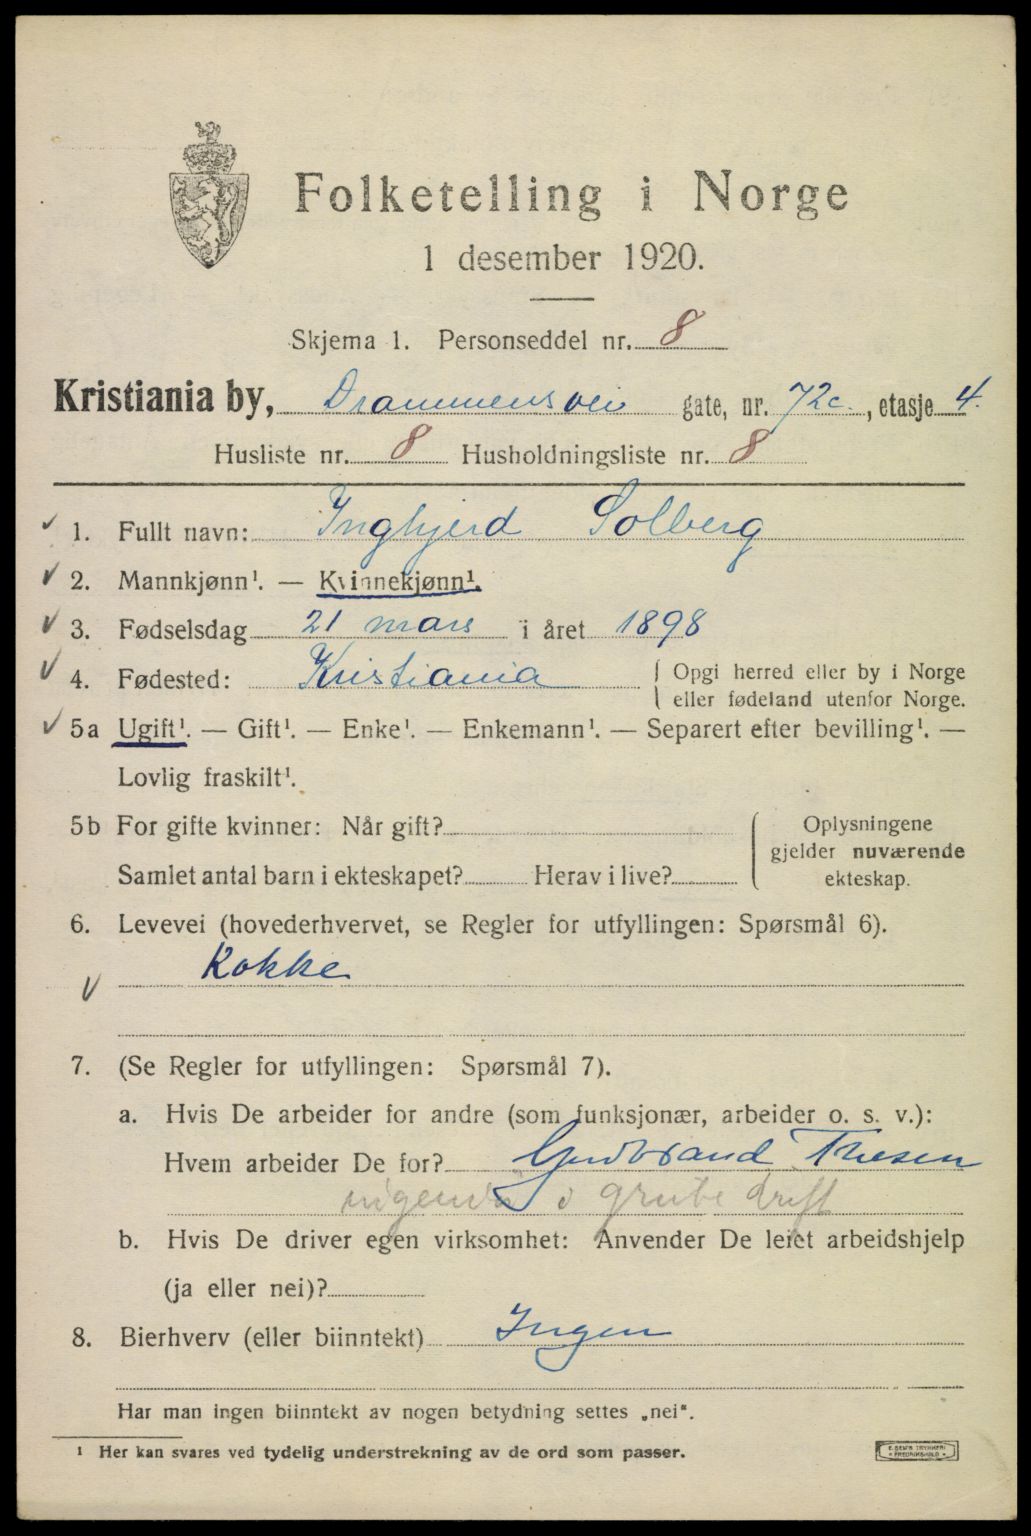 Folketelling i Norge
1 desember 1920.
Skjema 1. Personseddel nr. 8
Kristiania by, Drammensvei gate, nr. 72c., etasje 4.
Husliste nr. 8 Husholdningsliste nr. 8
1. Fullt navn: Ingbjerd Solberg
2. Mannkjønn¹. — Kvinnekjønn¹.
3. Fødselsdag 21 mars i året 1898
4. Fødested: Kristiania { Opgi herred eller by i Norge
eller fødeland utenfor Norge.
5a Ugift¹. — Gift¹. — Enke¹. — Enkemann¹. — Separert efter bevilling¹. —
Lovlig fraskilt¹.
5b For gifte kvinner: Når gift?
Samlet antal barn i ekteskapet? Herav i live?
Oplysningene
gjelder nuværende
ekteskap.
6. Levevei (hovederhvervet, se Regler for utfyllingen: Spørsmål 6).
Kokke
7. (Se Regler for utfyllingen: Spørsmål 7).
a. Hvis De arbeider for andre (som funksjonær, arbeider o. s. v.):
Hvem arbeider De for? Gudbrand Thesen
i grubedrift
b. Hvis De driver egen virksomhet: Anvender De leiet arbeidshjelp
(ja eller nei)?
8. Bierhverv (eller biinntekt) Ingen
Har man ingen biinntekt av nogen betydning settes „nei".
¹ Her kan svares ved tydelig understrekning av de ord som passer.